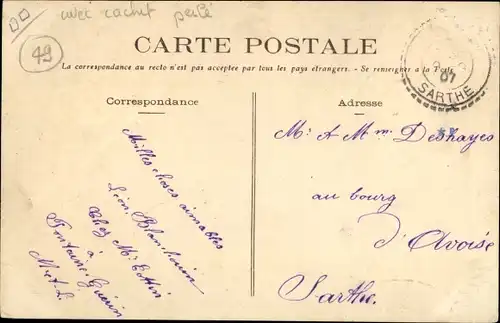 avec cachet perlé
49
CARTE POSTALE
La correspondance au recto n'est pas acceptée par tous les pays étrangers. - Se renseigner à la Poste
07
SARTHE
Correspondance
Adresse
Milles choses aimables
Léon
Chez Mr Cottin
à
Fontaine-Guérin
M-et-L.
Mr & Mme Deshayes
au bourg
d'Avoise
Sarthe.